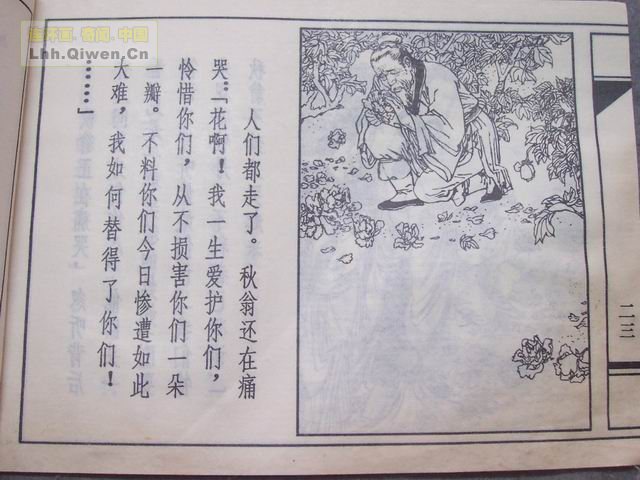 连环画.奇闻.中国
Lhh.Qiwen.Cn
二三
人们都走了。秋翁还在痛
哭：「花啊！我一生爱护你们，
怜惜你们，从不损害你们一朵
一瓣。不料你们今日惨遭如此
大难，我如何替得了你们！
……」